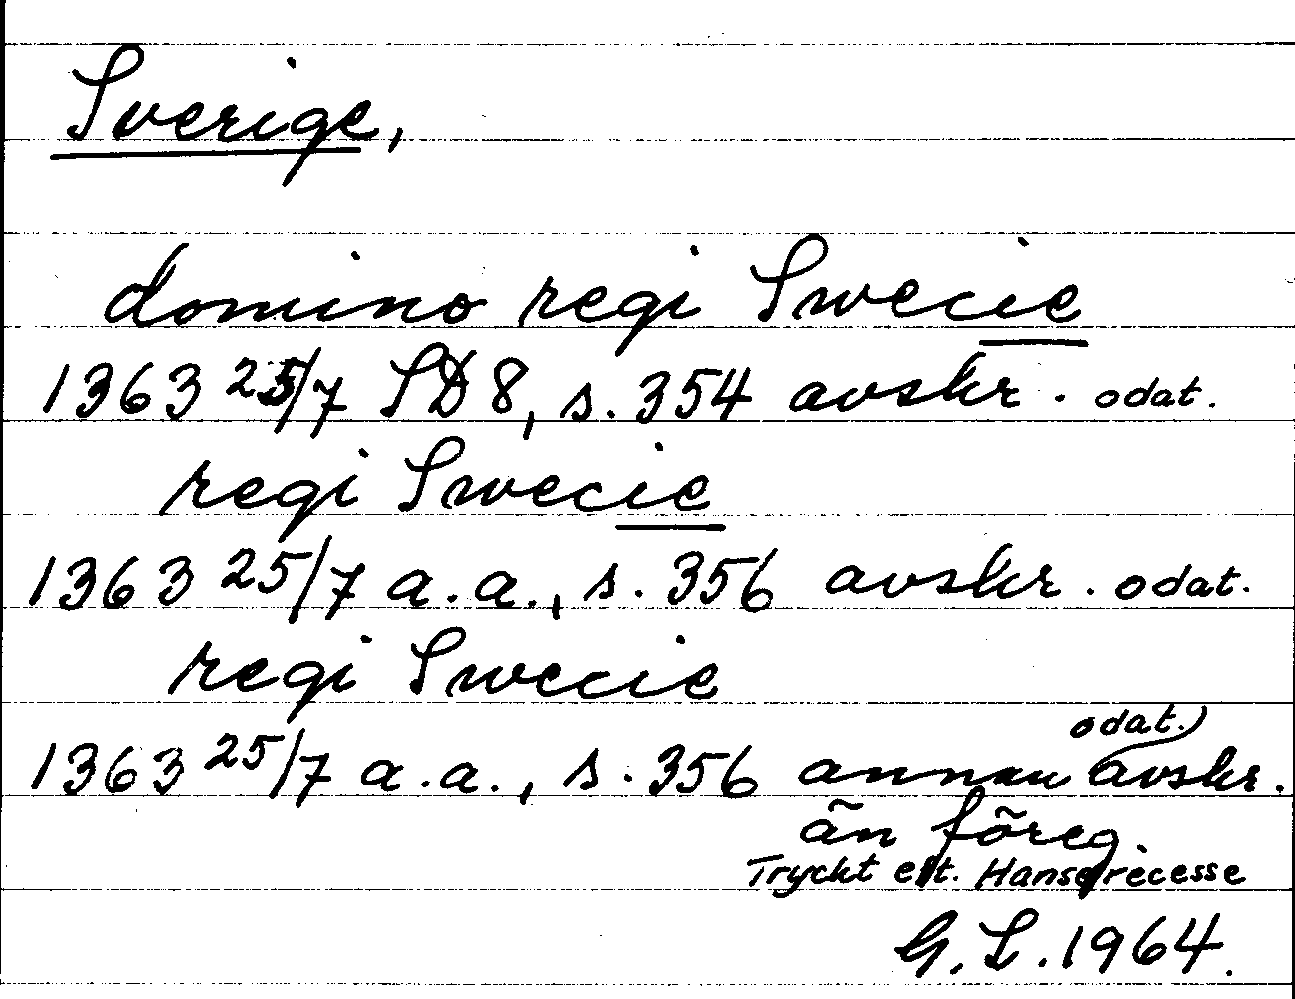 Sverige,
domino regi Swecie
1363 25/7 SD 8, s. 354 avskr. odat.
regi Swecie
1363 25/7 a.a., s. 356 avskr. odat.
regi Swecie
odat.)
1363 25/7 a.a., s. 356 annan avskr.
än föreg.
Tryckt eft. Hanserecesse
G.L. 1964.